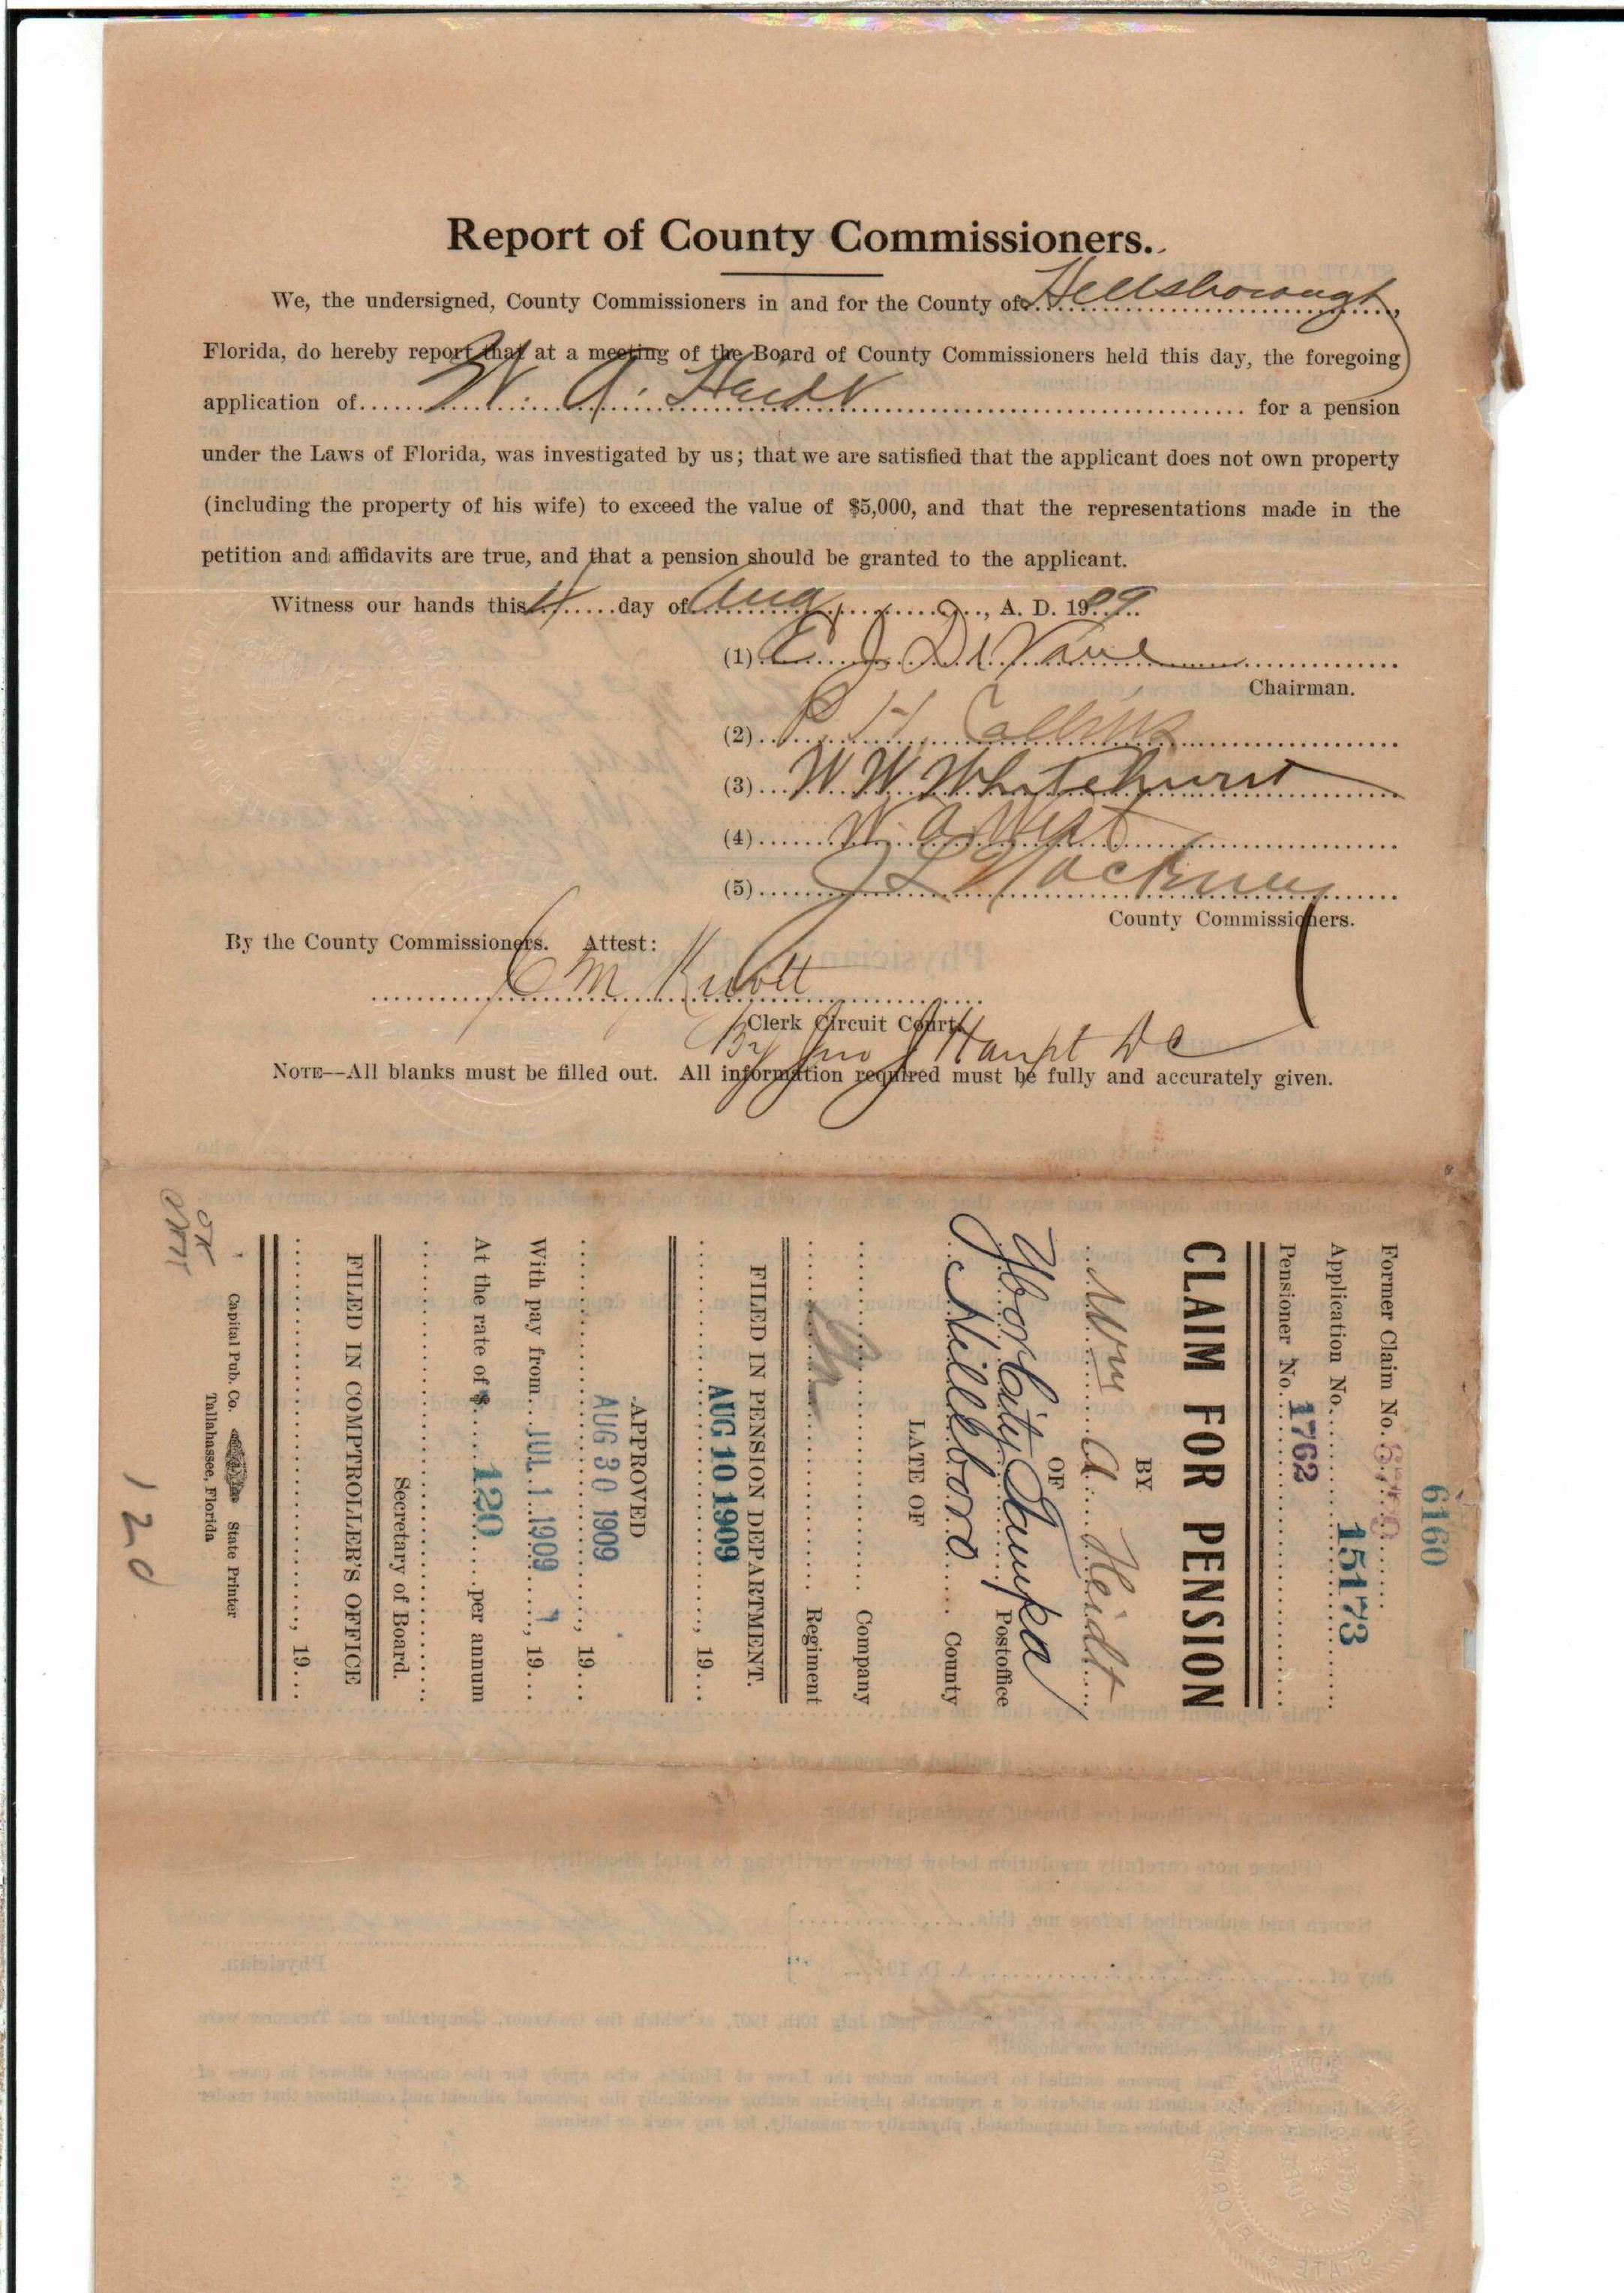 Report of County Commissioners.
We, the undersigned, County Commissioners in and for the County of Hillsborough,
Florida, do hereby report that at a meeting of the Board of County Commissioners held this day, the foregoing
application of W. A. Heidt for a pension
under the Laws of Florida, was investigated by us; that we are satisfied that the applicant does not own property
(including the property of his wife) to exceed the value of $5,000, and that the representations made in the
petition and affidavits are true, and that a pension should be granted to the applicant.
Witness our hands this 4 day of Aug, A. D. 1909.
(1) E. J. DeVane
Chairman.
(2) P H Collins
(3) W W Whitehurst
(4) W. A. West
(5) J L Hackney
County Commissioners.
By the County Commissioners. Attest:
C M Knott
Clerk Circuit Court.
By Jno J Haupt D C
NOTE—All blanks must be filled out. All information required must be fully and accurately given.
6160
Former Claim No.
Application No. 15173
Pensioner No. 1762
CLAIM FOR PENSION
BY
Wm A Heidt
OF
Ybor City Tampa Postoffice
Hillsboro County
LATE OF
Company
Regiment
FILED IN PENSION DEPARTMENT.
AUG 10 1909, 19
APPROVED
AUG 30 1909, 19
With pay from JUL 1 1909, 19
At the rate of $ 120 per annum
Secretary of Board.
FILED IN COMPTROLLER'S OFFICE
, 19
Capital Pub. Co. State Printer
Tallahassee, Florida
OK
120